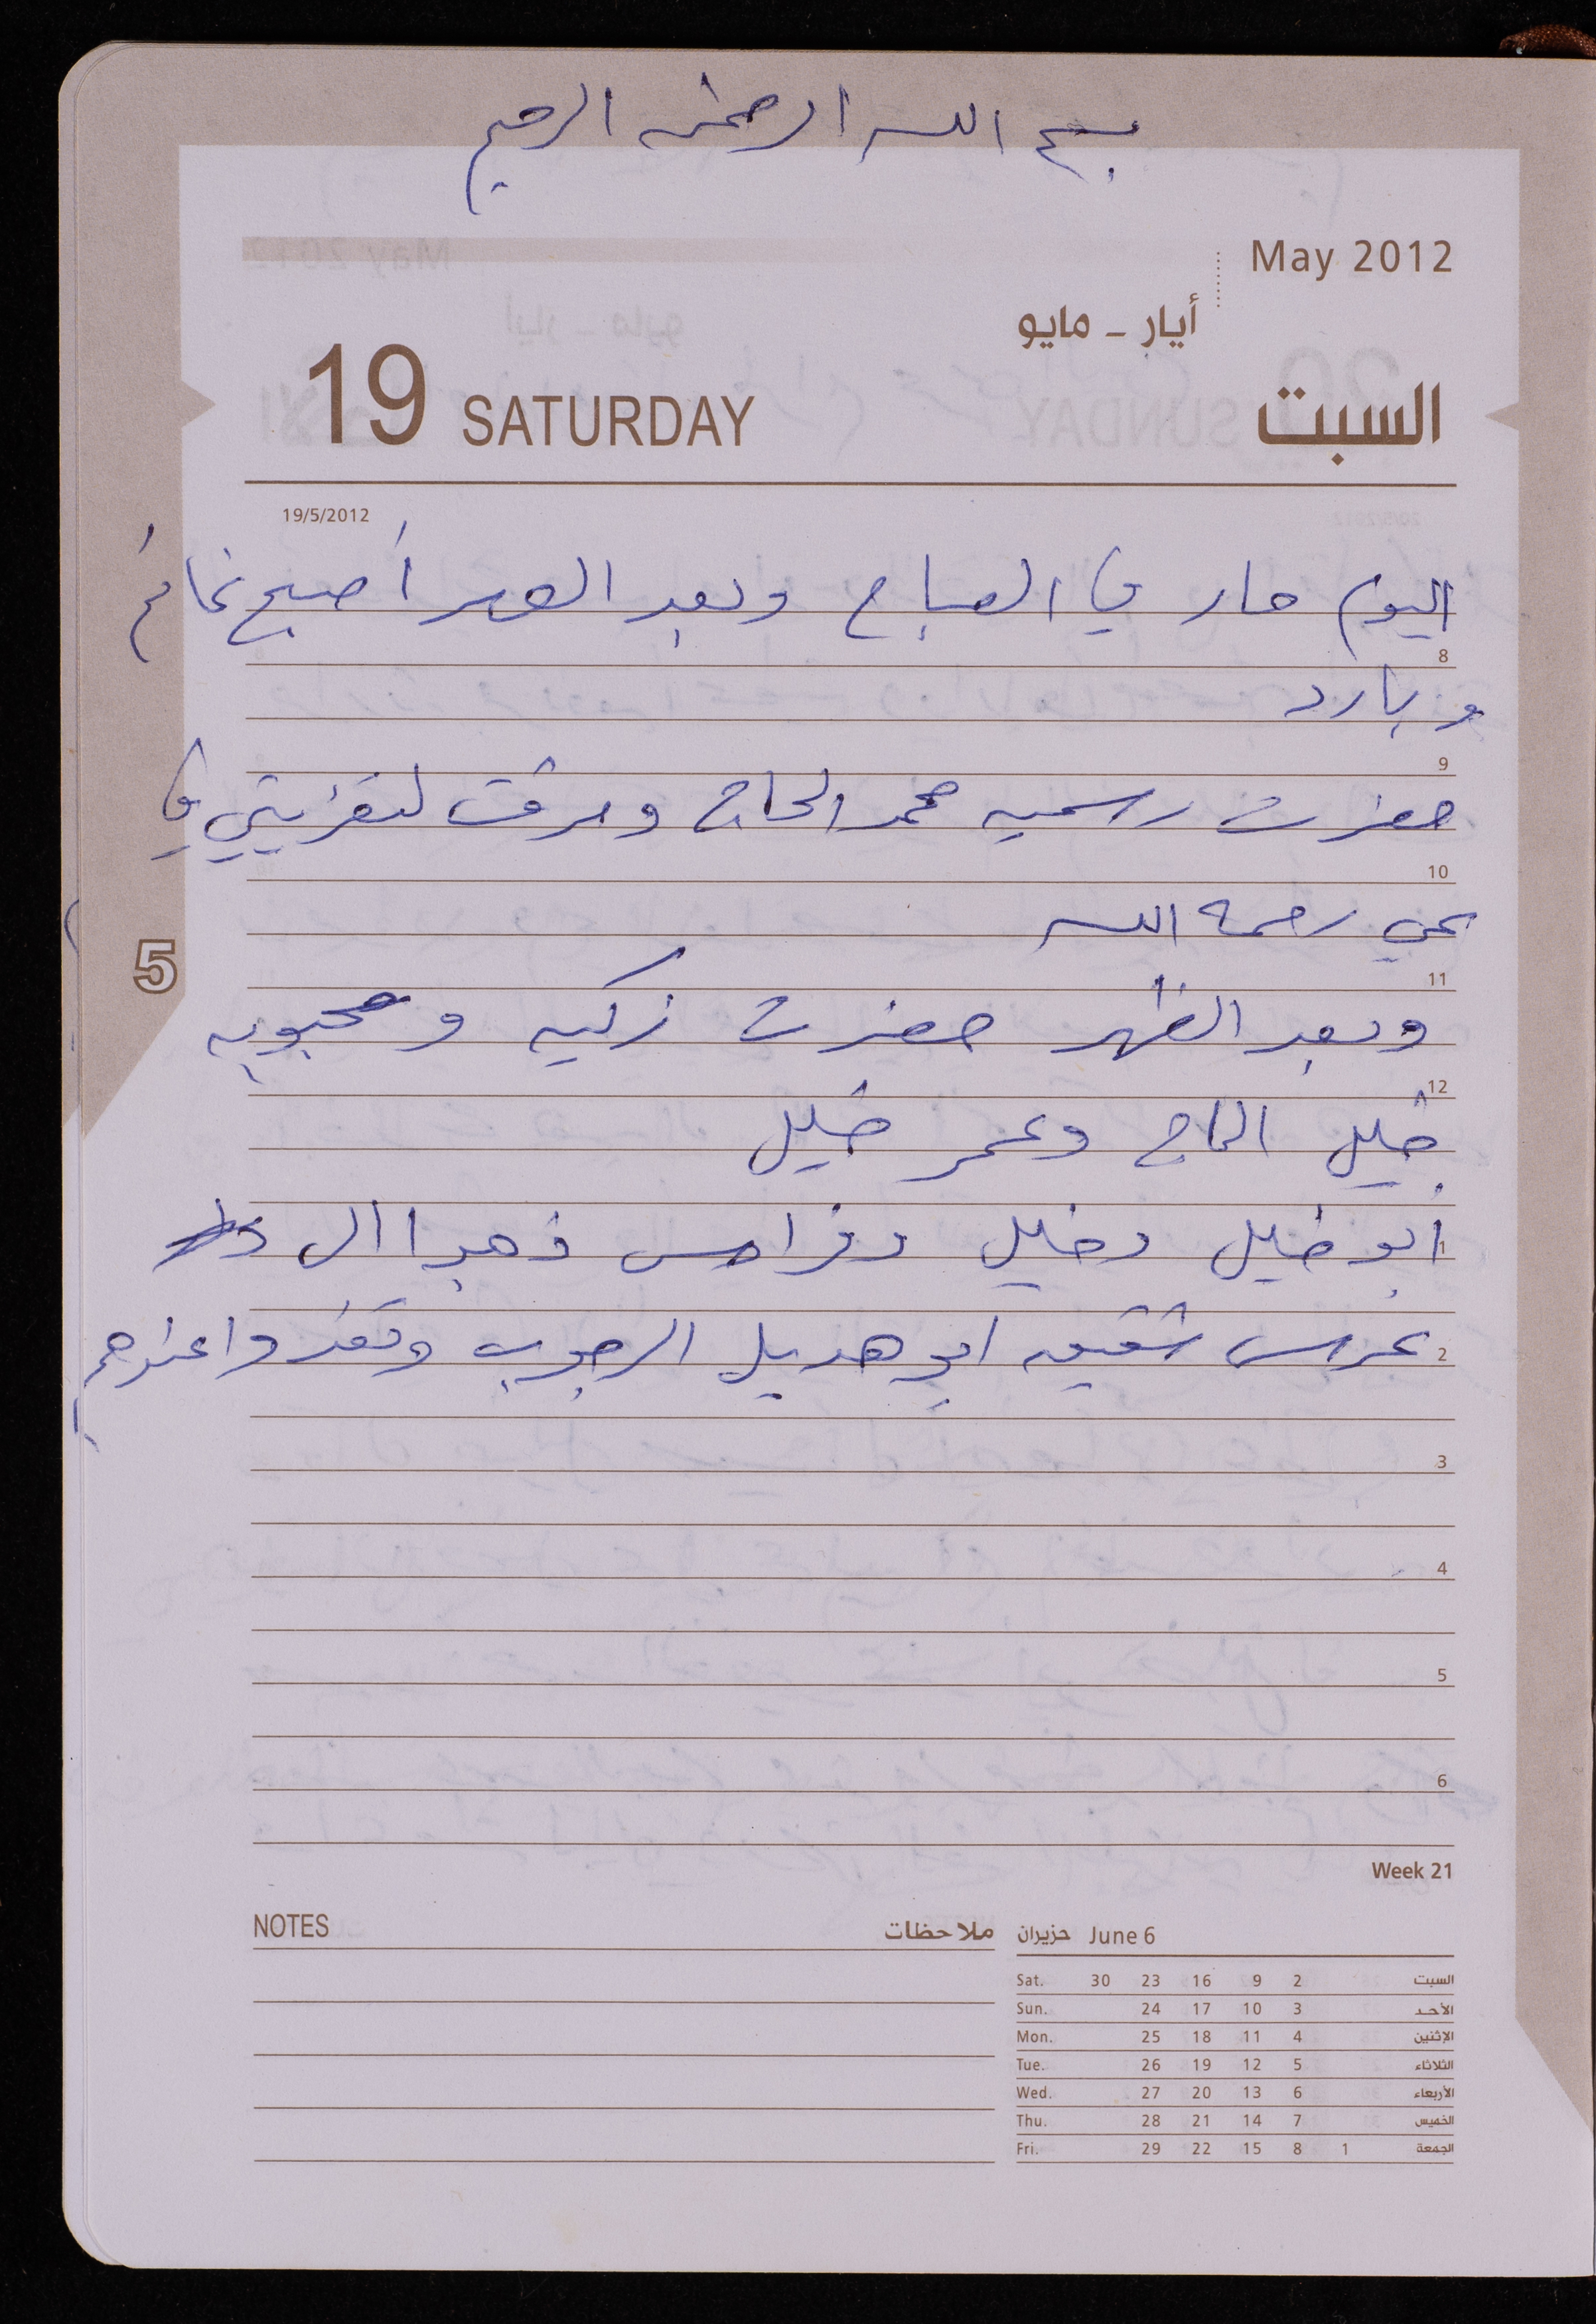 بسم الله الرحمن الرحيم
May 2012
أيار - مايو
19 SATURDAY السبت
19/5/2012
اليوم حار في الصباح وبعد العصر أصبح غائم
8
وبارد
9
حضرت رسميه محمد الحاج ومرقت لتعزيتي في
10
يحي رحمه الله
11
وبعد الظهر حضرت زكيه ومحبوبه
12
خليل الحاج وعمر خليل
1 أبو خليل وخليل وفراس ذهبوا الى
2 عرس شقيق ابو هديل الرجوب وتغذوا عندهم
3
4
5
6
5
Week 21
NOTES ملاحظات
حزيران June 6
Sat. 30 23 16 9 2 السبت
Sun. 24 17 10 3 الأحد
Mon. 25 18 11 4 الإثنين
Tue. 26 19 12 5 الثلاثاء
Wed. 27 20 13 6 الأربعاء
Thu. 28 21 14 7 الخميس
Fri. 29 22 15 8 1 الجمعة